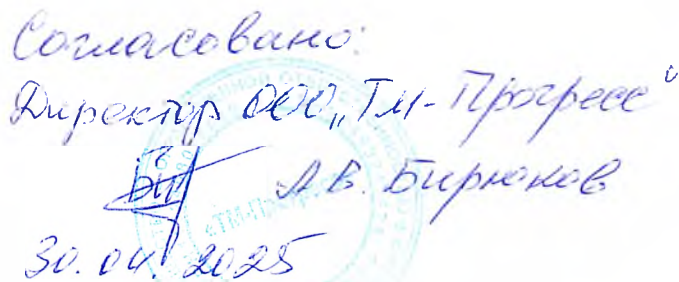 Согласовано:
Директор ООО „ТМ-Прогресс“
А.В. Бирюков
30.04.2025